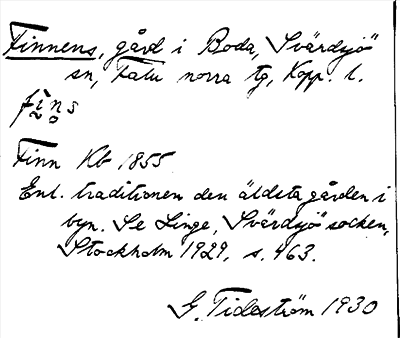 Finnens, gård i Boda, Svärdsjö
sn, Falu norra tg, Kopp. l.
fịn̥s
Finn Kb 1855
Enl. traditionen den äldsta gården i
byn. Se Linge, Svärdsjö socken,
Stockholm 1929, s. 463.
G. Tideström 1930